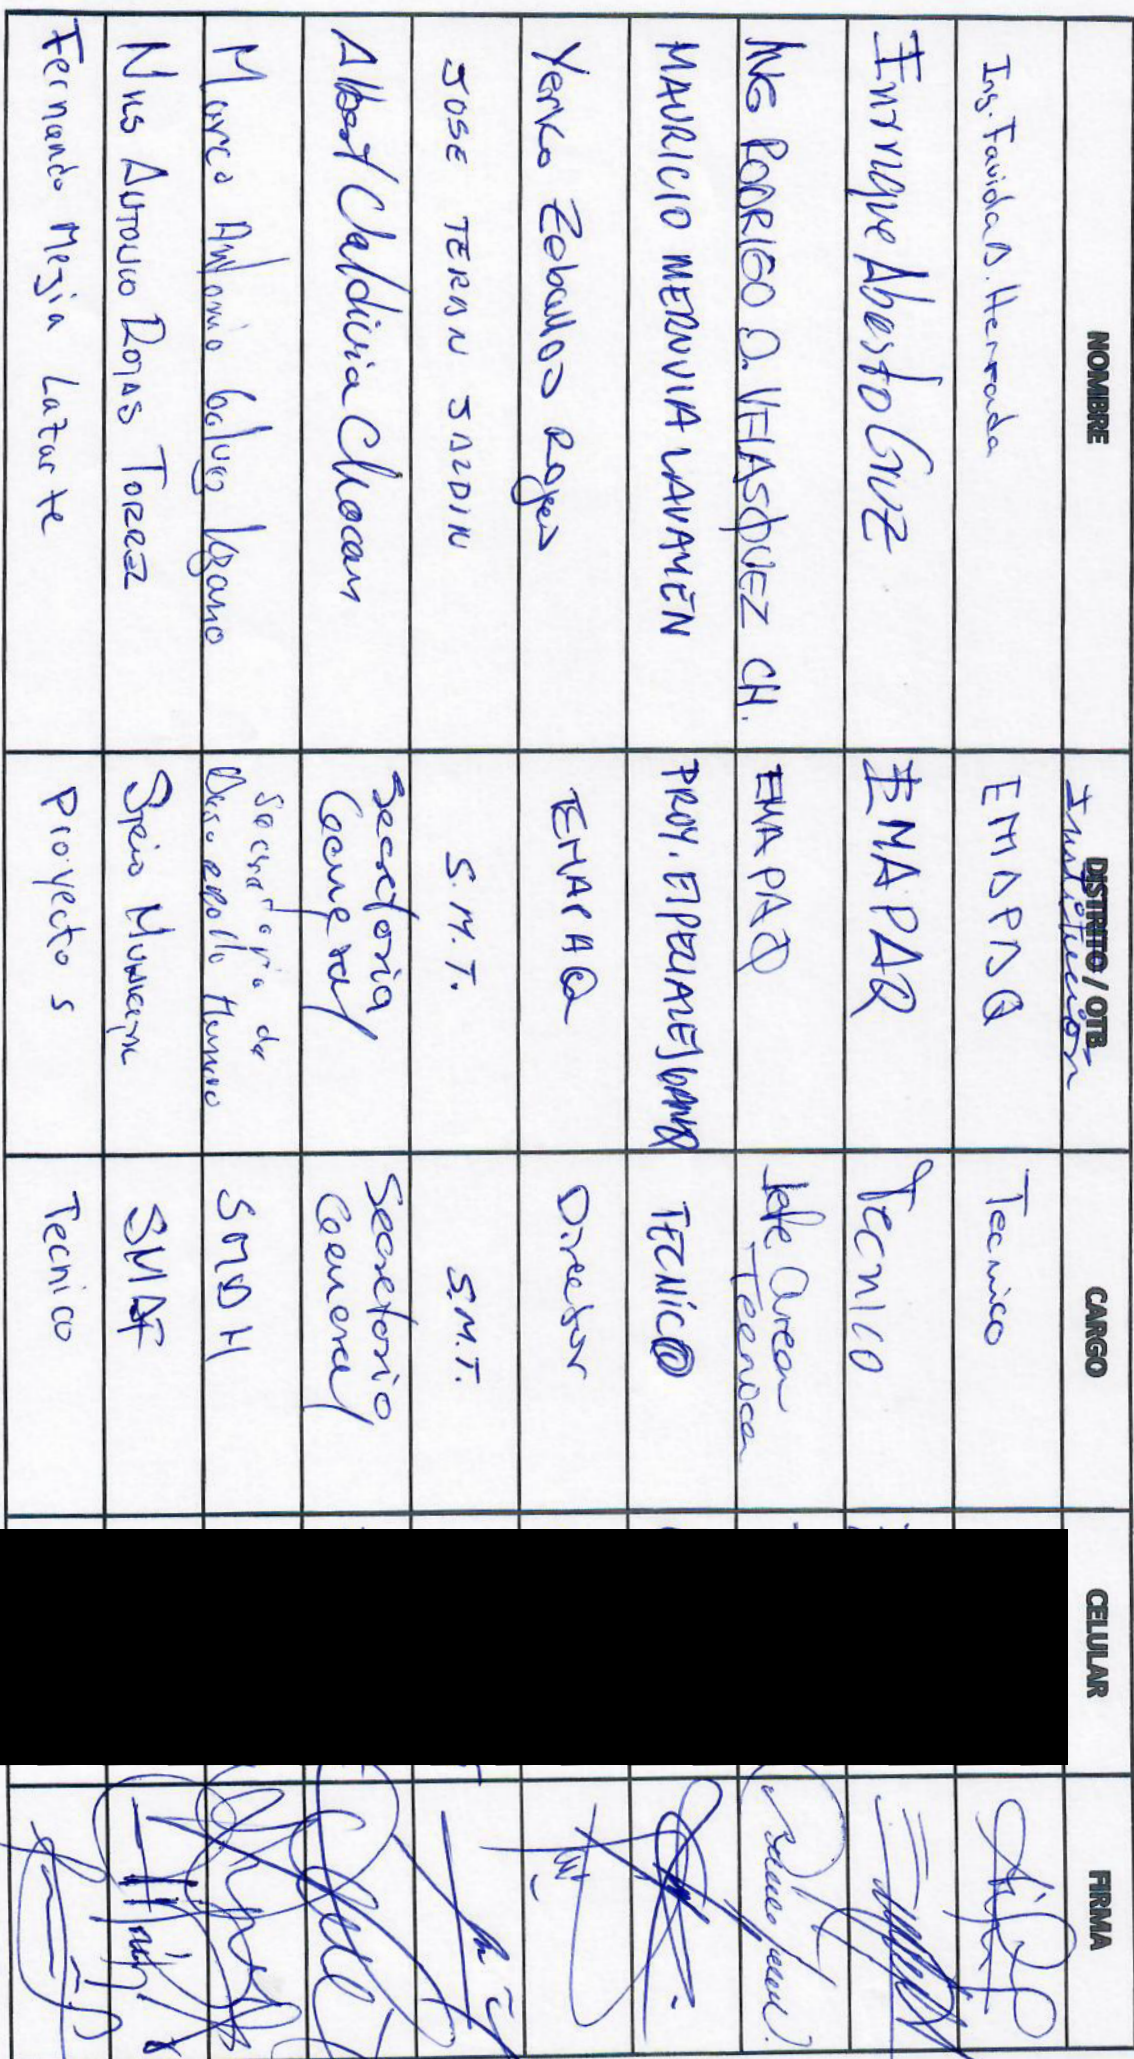 NOMBRE DISTRITO / OTB Institución CARGO CELULAR FIRMA
Ing. Favida D. Herrada EMAPAQ Tecnico
Enrrique Abasto Cruz EMAPAQ Tecnico
ING RODRIGO O. VELASQUEZ CH. EMAPAQ Jefe Area Tecnica
MAURICIO MERUVIA PROY. TECNICO
Yerko Zeballos Rojas EMAPAQ Director
JOSE TERAN S.M.T. S.M.T.
Albert Valdivia Chocan Secretaria General Secretario General
Marco Antonio Galvez Lozano Secretaria de Desarrollo Humano SMDH
ANTONIO ROJAS TORREZ SMAF
Fernando Mejia Lazarte Proyectos Tecnico